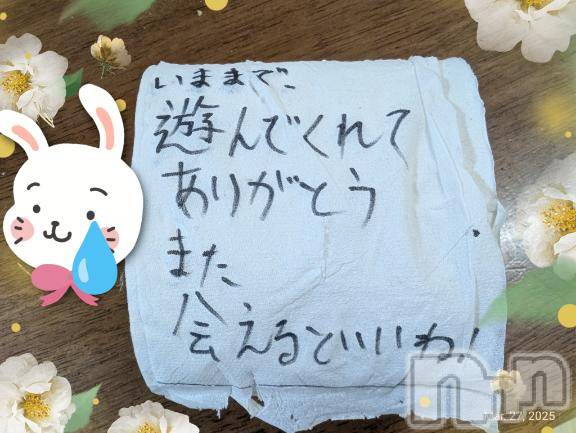 いままで、
遊んでくれて
ありがとう
また、
会えるといいね!
nn
27, 2025